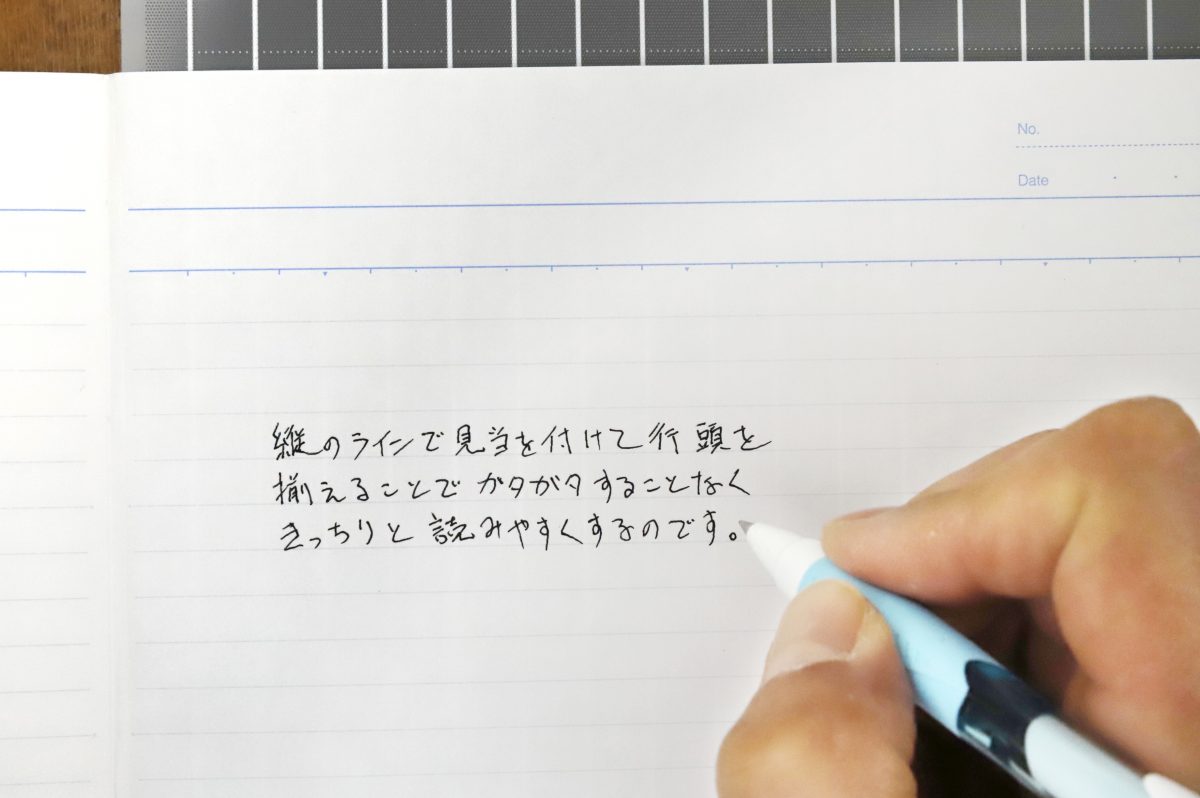 No.
Date
縦のラインで見当を付けて行頭を
揃えることでガタガタすることなく
きっちりと読みやすくするのです。